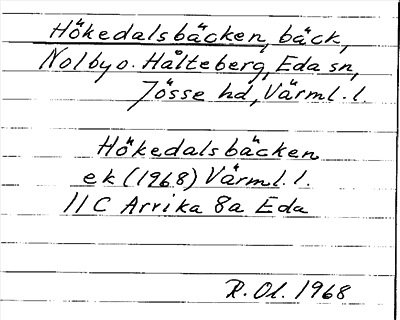 Hökedalsbäcken, bäck,
Nolby o. Hålteberg, Eda sn,
Jösse hd, Värml. l.
Hökedalsbäcken
ek (1968) Värml. l.
11C Arvika 8a Eda
R. Ol. 1968